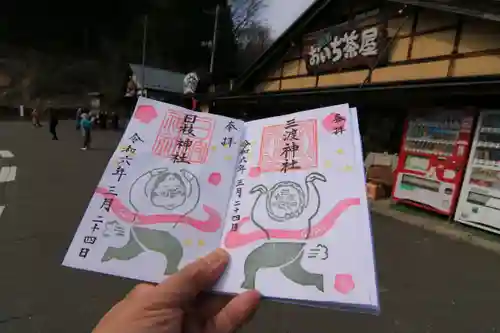 おいち茶屋
奉拝
三渡神社
令和六年 三月二十四日
奉拝
日枝神社
令和六年 三月二十四日